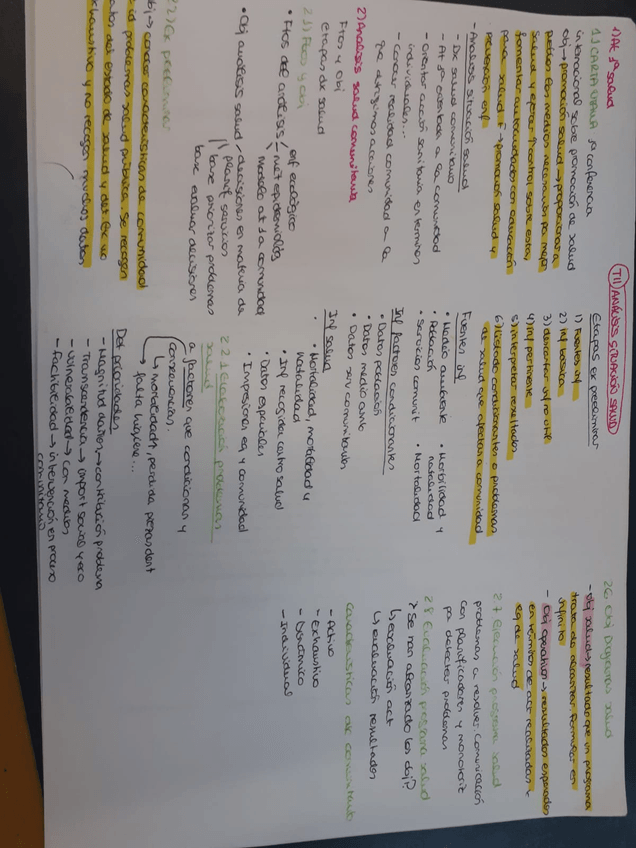 T11 ANÁLISIS SITUACIÓN SALUD
1) At 1ª salud
1.1 CARTA OTTAWA 1ª conferencia
internacional sobre promoción de salud
obj → promoción salud → proporcionar a
pueblos los medios necesarios pa mejorar
salud y ejercer ↑ control sobre esta y
fomentar autocuidados con educación
para salud
prevención enf
- Análisis situación salud
- De salud comunitario
- At 1ª orientada a la comunidad
- orientar acción sanitaria en términos
individuales...
- Conocer realidad comunidad a la
que dirigimos acciones
2) Análisis salud comunitaria
Ftos y obj
etapas de salud
2.1) Ftos y obj
• Ftos de análisis
enf ecológico
nuet epidemiológ
modelo at 1ª a comunidad
• Obj análisis salud
decisiones en materia de
planif servicios
base priorizar problemas
base evaluar decisiones
2.2) Ex preliminar
obj → conocer características de comunidad
id problemas salud pública. Se recogen
datos del estado de salud y det. Ex no
exhaustivo y no recogen muchos datos
Etapas ex preliminar
1) Fuentes inf
2) inf básica
3) detectar inf no útil
4) inf pertinente
5) interpretar resultados
6) listado condicionantes o problemas
de salud que afectan a comunidad
Fuentes inf
• Medio ambiente
• Población
• Servicios comunit
• Morbilidad y
natalidad
• Mortalidad
Inf factores condicionantes
• Datos población
• Datos medio amb
• Datos serv comunitarios
Inf salud
• Mortalidad, morbilidad y
natalidad
• Inf recogida cntro salud
• Datos especiales
• Impresiones eq y comunidad
2.2.1 Elaboración problemas
salud
a factores que condicionan y
consecuencias.
↳ mortalidad, perdida piezas dent
falta higiene...
Det prioridades
- Magnitud daños → contribución problema
- Transcendencia → import social y eco
- Vulnerabilidad → con medios
- Factibilidad → intervención en proceso
comunitario
2.6. Obj programas salud
- obj salud → resultado que un programa
trata de alcanzar. Formular en
infinitivo
- Obj operativo → resultados esperados
en términos de act realizadas x
eq de salud
2.7 Ejecución programa salud
problemas a resolver. Comunicación
con planificadores y monitoriz
pa detectar problemas
2.8 Evaluación programa salud
? Se han alcanzado los obj?
↳ evaluación act
↳ evaluación resultados
Características de comunitario
- Activo
- Exhaustivo
- Dinámico
- Individual